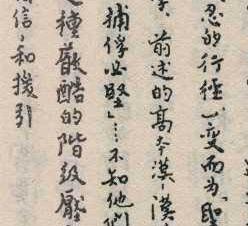 忍的行徑一變而為「聖
、前述的高本漢、漢
捕俘必堅」…不知他們
這種嚴酷的階級壓
信，和援引